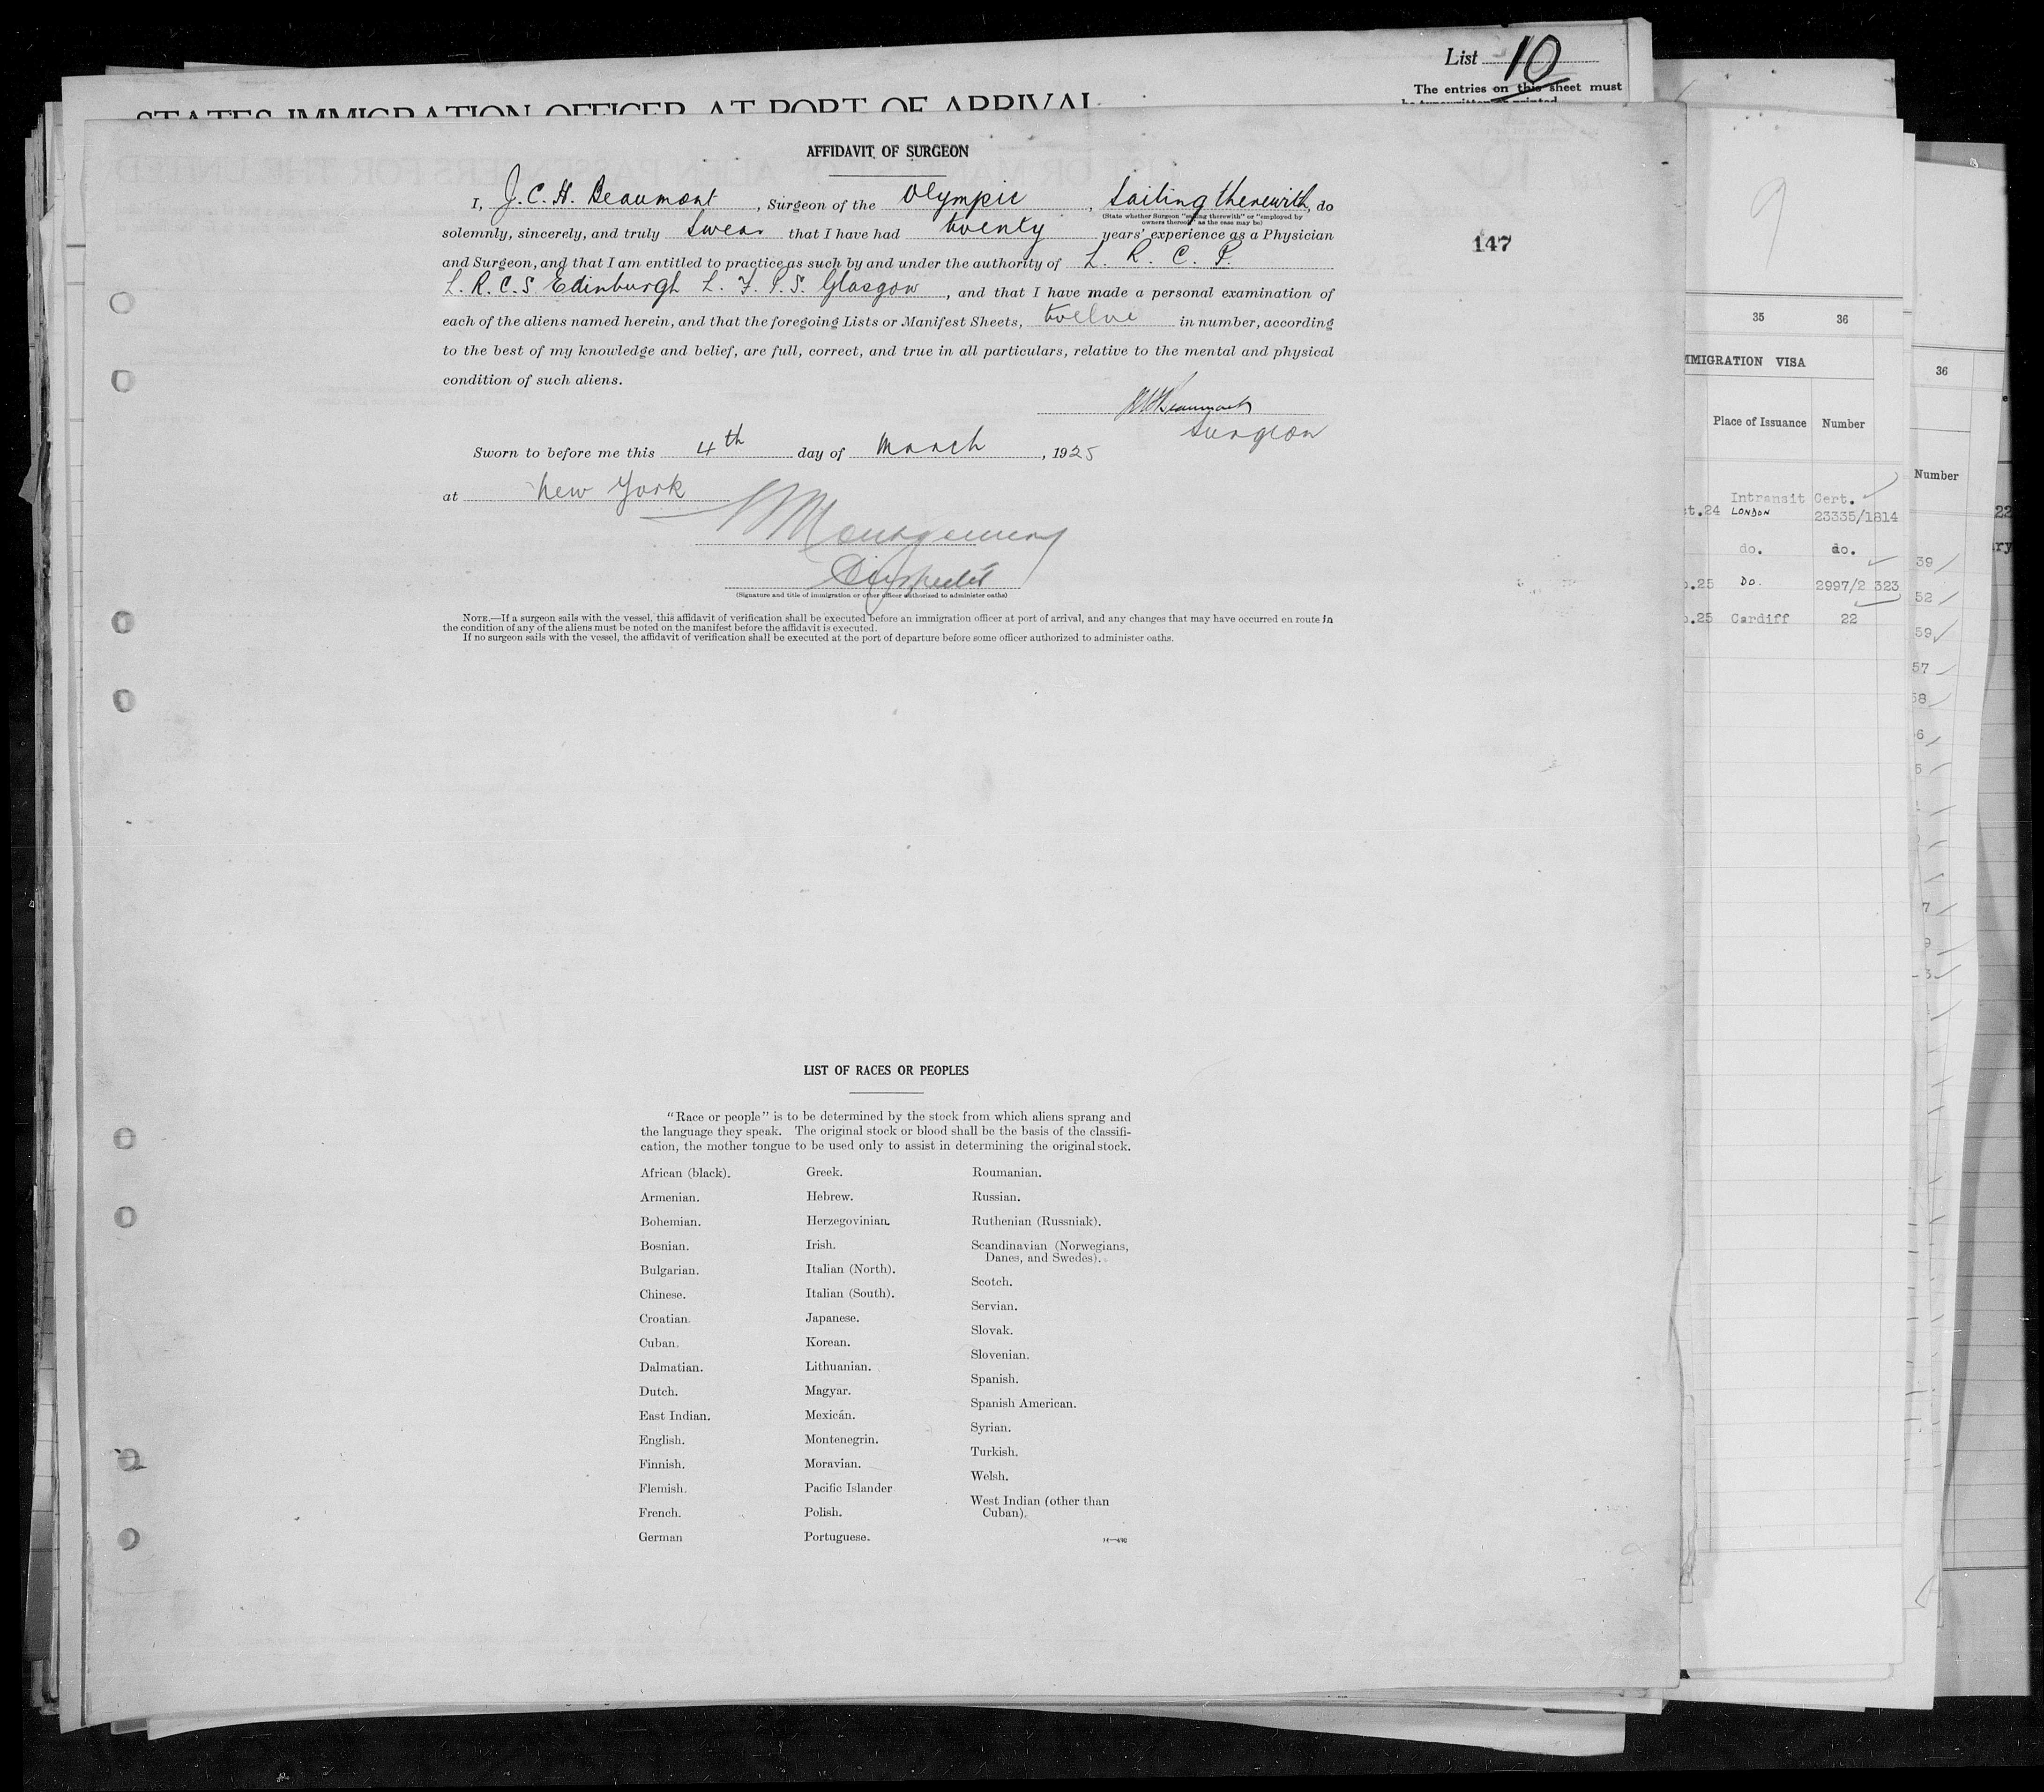 List 10
The entries on this sheet must
STATES IMMIGRATION OFFICER AT PORT OF ARRIVAL
AFFIDAVIT OF SURGEON
I, J. C. H. Beaumont, Surgeon of the Olympic, Sailing therewith, do
(State whether Surgeon "sailing therewith" or "employed by
owners thereof," as the case may be)
solemnly, sincerely, and truly Swear that I have had twenty years' experience as a Physician
and Surgeon, and that I am entitled to practice as such by and under the authority of L. R. C. P.
L. R. C. S. Edinburgh L. F. P. S. Glasgow, and that I have made a personal examination of
each of the aliens named herein, and that the foregoing Lists or Manifest Sheets, twelve in number, according
to the best of my knowledge and belief, are full, correct, and true in all particulars, relative to the mental and physical
condition of such aliens.
Beaumont
Surgeon
Sworn to before me this 4th day of March, 1925
at New York
Montgomery
(Signature and title of immigration or other officer authorized to administer oaths)
NOTE.—If a surgeon sails with the vessel, this affidavit of verification shall be executed before an immigration officer at port of arrival, and any changes that may have occurred en route in
the condition of any of the aliens must be noted on the manifest before the affidavit is executed.
If no surgeon sails with the vessel, the affidavit of verification shall be executed at the port of departure before some officer authorized to administer oaths.
147
LIST OF RACES OR PEOPLES
"Race or people" is to be determined by the stock from which aliens sprang and
the language they speak. The original stock or blood shall be the basis of the classifi-
cation, the mother tongue to be used only to assist in determining the original stock.
African (black).
Armenian.
Bohemian.
Bosnian.
Bulgarian.
Chinese.
Croatian.
Cuban.
Dalmatian.
Dutch.
East Indian.
English.
Finnish.
Flemish.
French.
German
Greek.
Hebrew.
Herzegovinian.
Irish.
Italian (North).
Italian (South).
Japanese.
Korean.
Lithuanian.
Magyar.
Mexican.
Montenegrin.
Moravian.
Pacific Islander
Polish.
Portuguese.
Roumanian.
Russian.
Ruthenian (Russniak).
Scandinavian (Norwegians,
Danes, and Swedes).
Scotch.
Servian.
Slovak.
Slovenian.
Spanish.
Spanish American.
Syrian.
Turkish.
Welsh.
West Indian (other than
Cuban).
9
35 36
IMMIGRATION VISA
Place of Issuance Number
Intransit Cert.
t.24 LONDON 23335/1814
do. do.
.25 Do 2997/2 323
.25 Cardiff 22
36
Number
39
52
59
57
58
6
5
7
9
3
22
ry